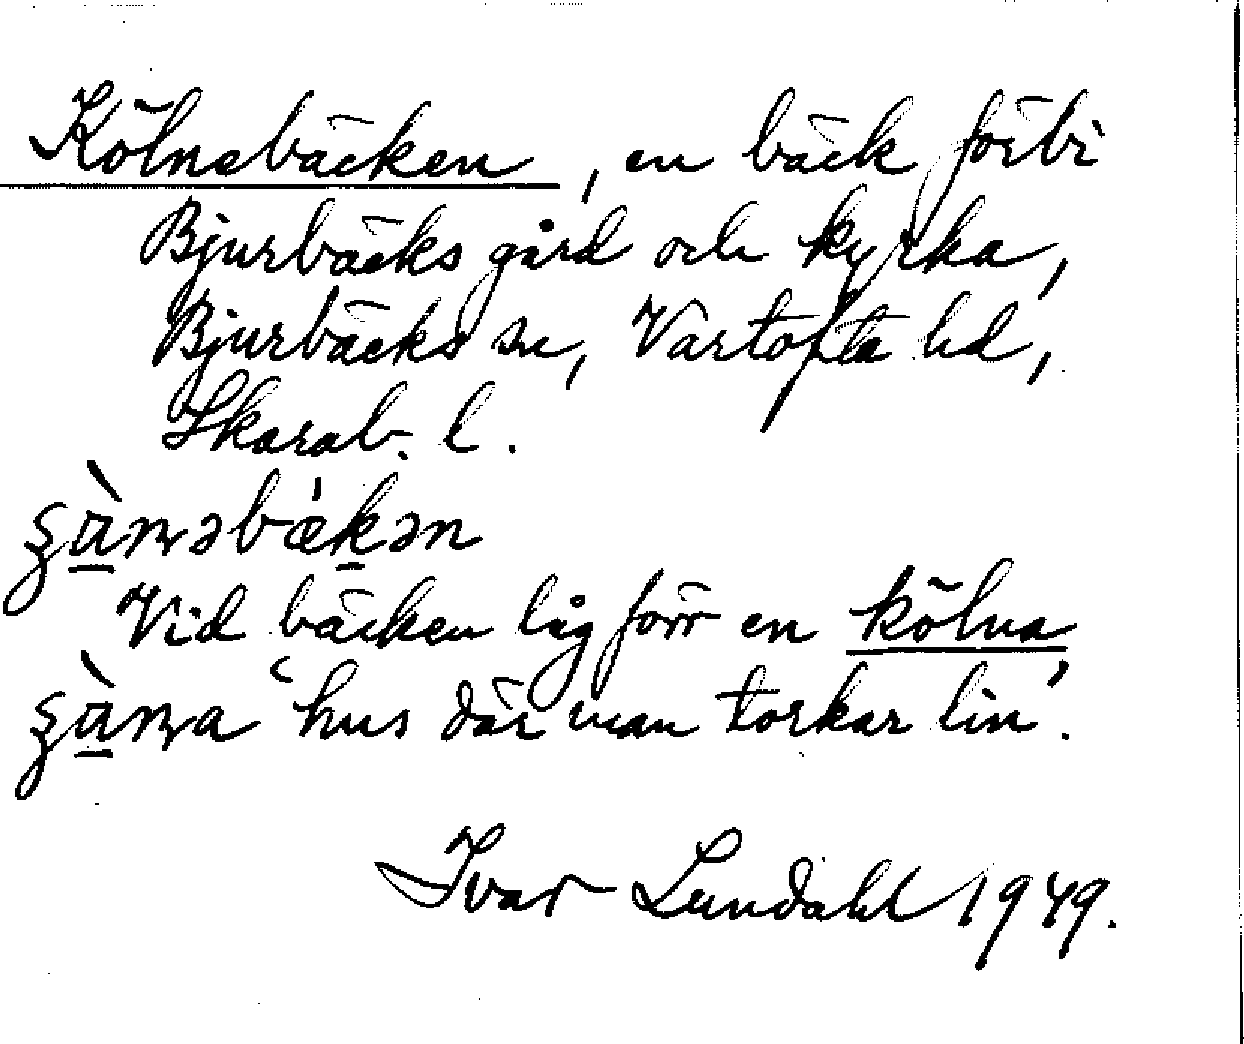 Kölnebäcken, en bäck förbi
Bjurbäcks gård och kyrka,
Bjurbäcks sn, Vartofta hd,
Skarab. l.
Vid bäcken låg förr en kölna
‘hus där man torkar lin’.
Ivar Lundahl 1949.